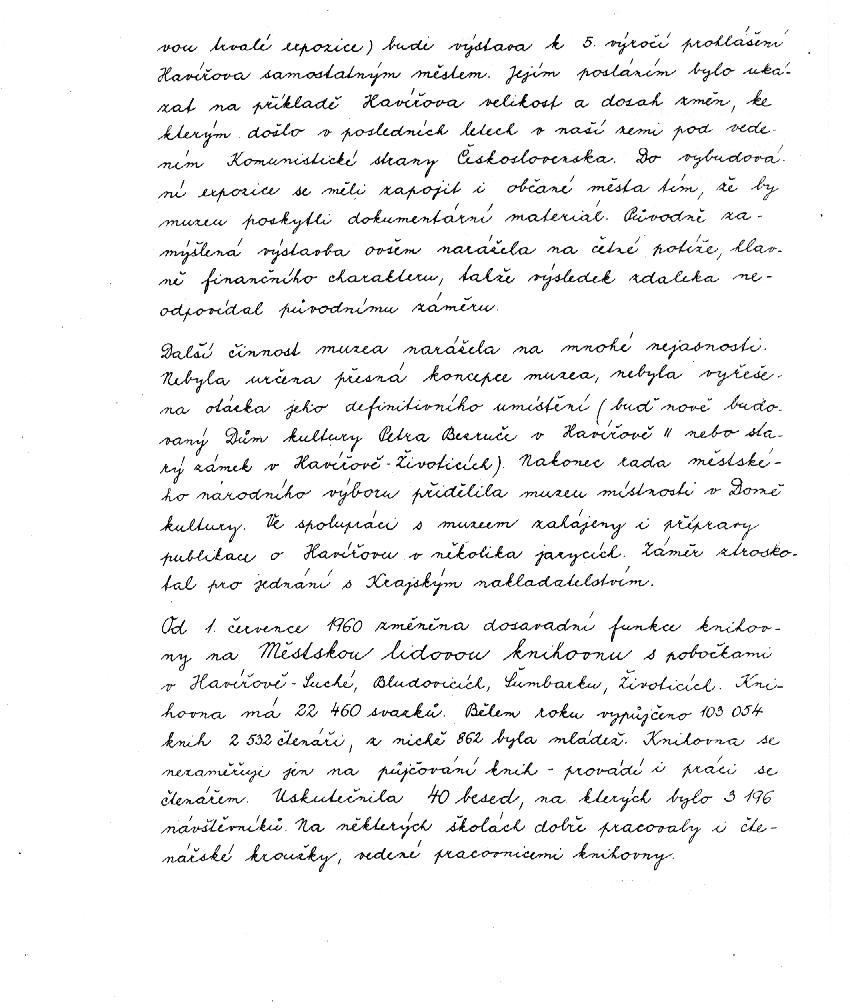 vou trvalé expozice) bude výstava k 5. výročí prohlášení
Havířova samostatným městem. Jejím posláním bylo uká-
zat na příkladě Havířova velikost a dosah změn, ke
kterým došlo v posledních letech v naší zemi pod vede-
ním Komunistické strany Československa. Do vybudová-
ní expozice se měli zapojit i občané města tím, že by
muzeu poskytli dokumentární materiál. Původně za-
mýšlená výstavba ovšem narážela na četné potíže, hlav-
ně finančního charakteru, takže výsledek zdaleka ne-
odpovídal původnímu záměru.
Další činnost muzea narážela na mnohé nejasnosti.
Nebyla určena přesná koncepce muzea, nebyla vyřeše-
na otázka jeho definitivního umístění (buď nově budo-
vaný Dům kultury Petra Bezruče v Havířově II nebo sta-
rý zámek v Havířově-Životicích). Nakonec rada městské-
ho národního výboru přidělila muzeu místnosti v Domě
kultury. Ve spolupráci s muzeem zahájeny i přípravy
publikace o Havířovu v několika jazycích. Záměr ztrosko-
tal pro jednání s Krajským nakladatelstvím.
Od 1. července 1960 změněna dosavadní funkce knihov-
ny na Městskou lidovou knihovnu s pobočkami
v Havířově-Suché, Bludovicích, Šumbarku, Životicích. Kni-
hovna má 22 460 svazků. Během roku vypůjčeno 103 054
knih 2 532 čtenáři, z nichž 862 byla mládež. Knihovna se
nezaměřuje jen na půjčování knih - provádí i práci se
čtenářem. Uskutečnila 40 besed, na kterých bylo 3 196
návštěvníků. Na některých školách dobře pracovaly i čte-
nářské kroužky, vedené pracovnicemi knihovny.